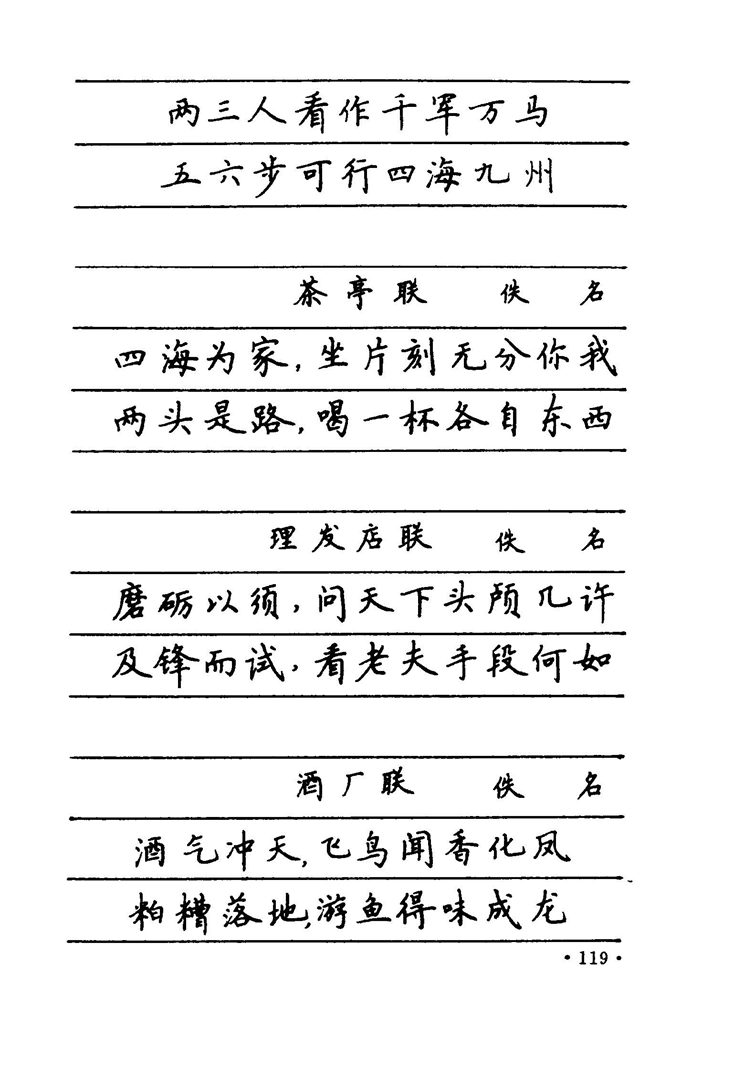 两三人看作千军万马
五六步可行四海九州
茶亭联 佚名
四海为家，坐片刻无分你我
两头是路，喝一杯各自东西
理发店联 佚名
磨砺以须，问天下头颅几许
及锋而试，看老夫手段何如
酒厂联 佚名
酒气冲天，飞鸟闻香化凤
粕糟落地，游鱼得味成龙
·119·